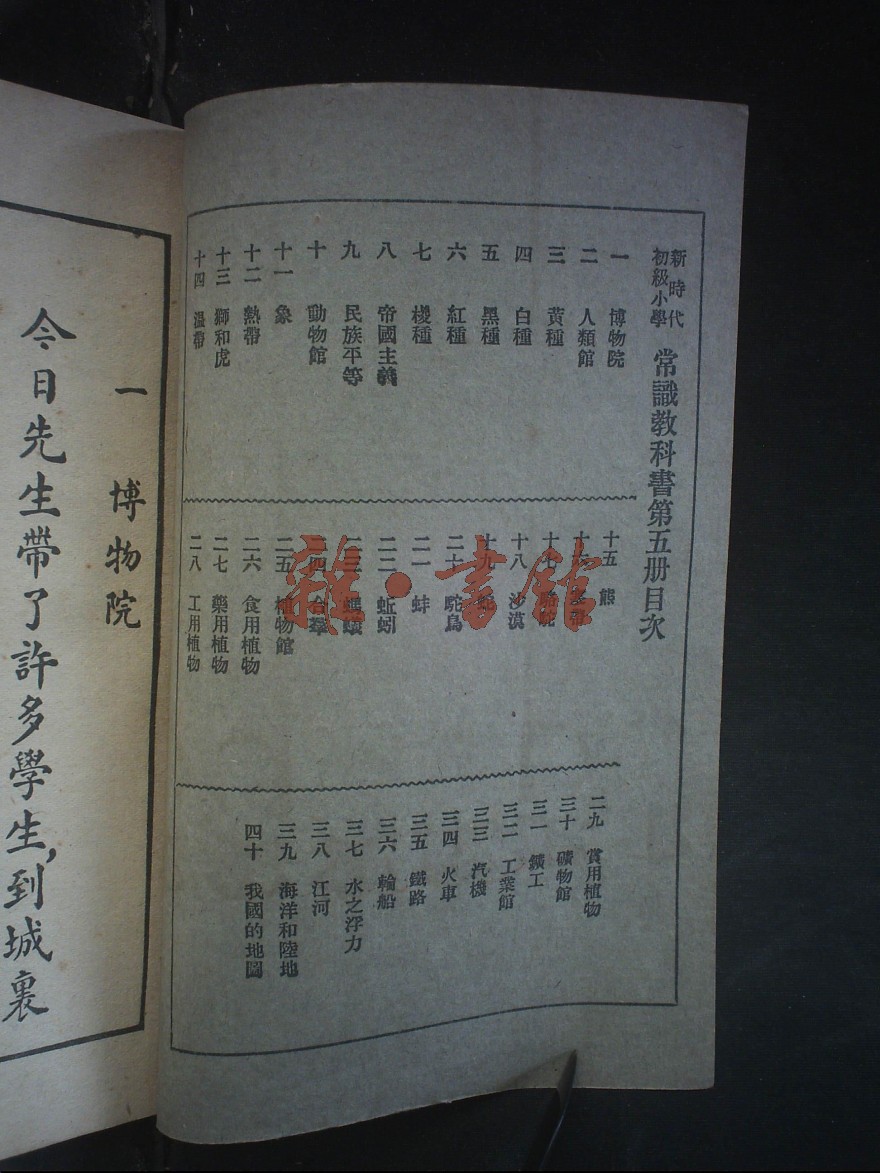 新時代
初級小學
常識教科書第五册目次
一 博物院
二 人類館
三 黃種
四 白種
五 黑種
六 紅種
七 椶種
八 帝國主義
九 民族平等
十 動物館
十一 象
十二 熱帶
十三 獅和虎
十四 溫帶
十五 熊
十六 寒帶
十七 駱駝
十八 沙漠
十九 蛇
二十 駝鳥
二一 蚌
二二 蚯蚓
二三 螞蟻
二四 合羣
二五 植物館
二六 食用植物
二七 藥用植物
二八 工用植物
二九 賞用植物
三十 礦物館
三一 鑛工
三二 工業館
三三 汽機
三四 火車
三五 鐵路
三六 輪船
三七 水之浮力
三八 江河
三九 海洋和陸地
四十 我國的地圖
雜·書館
一 博物院
今日先生帶了許多學生,到城裏